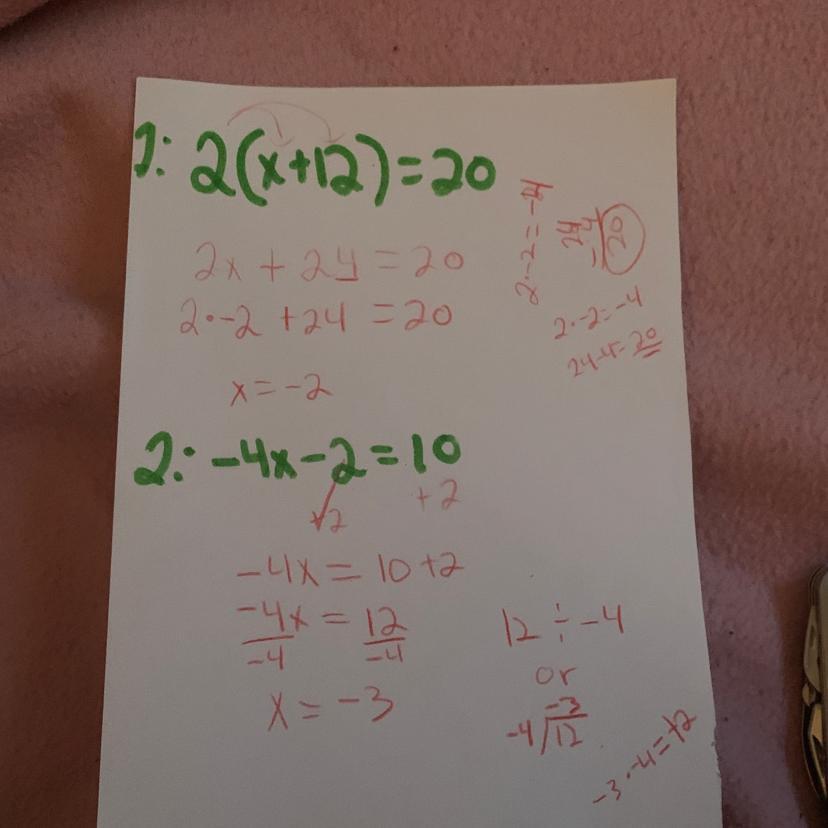 1: 2(x+12)=20
2x + 24 = 20
2·-2 +24 = 20
x = -2
2·-2 = -4
24
-4
20
2·-2=-4
24-4=20
2: -4x-2=10
+2 +2
-4x = 10+2
-4x = 12
-4 -4
x = -3
12 ÷ -4
or
-3
-4 12
-3·-4=12